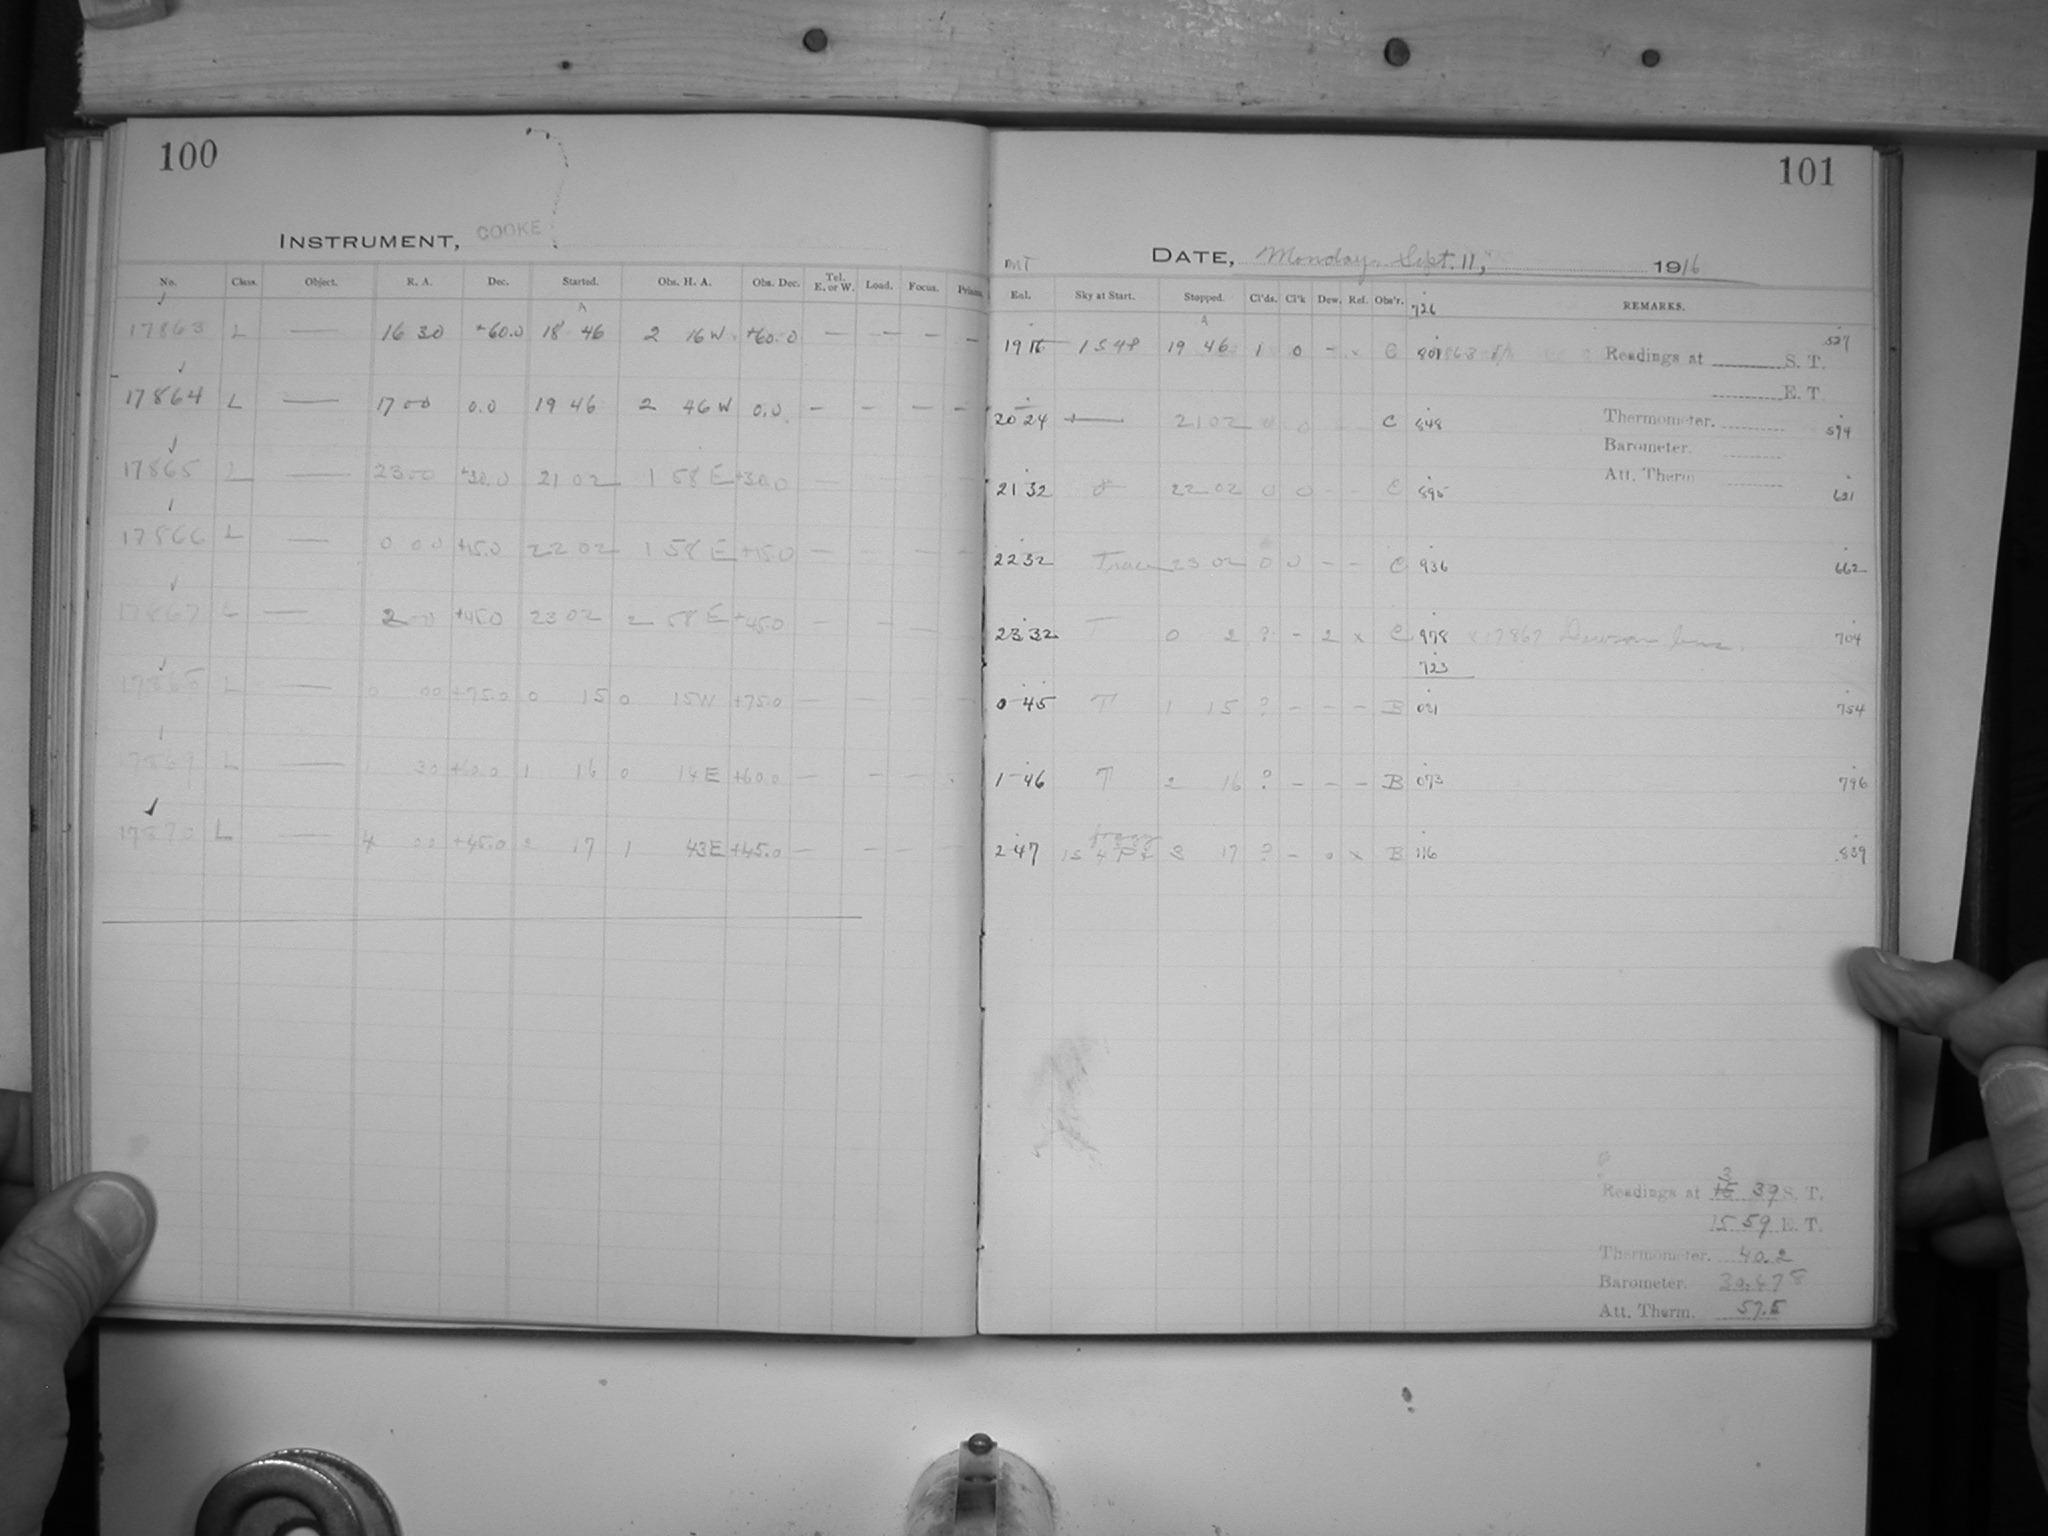 100
INSTRUMENT, COOKE
No. Class. Object. R. A. Dec. Started. Obs. H. A. Obs. Dec. Tel. E. or W. Load. Focus.
A
17863 L — 16 30 +60.0 18 46 2 16 W +60.0 — — — —
17864 L — 17 00 0.0 19 46 2 46 W 0.0 — — — —
17865 L — 23 00 +30.0 21 02 1 58 E +30.0 — — —
17866 L — 0 00 +15.0 22 02 1 58 E +15.0 — — —
17867 L — 2 00 +45.0 23 02 2 58 E +45.0 — — —
17868 L — 0 00 +75.0 0 15 0 15 W +75.0 — — —
17869 L — 1 30 +60.0 1 16 0 14 E +60.0 — — —
17870 L — 4 00 +45.0 2 17 1 43 E +45.0 — — —
101
DATE, Monday, Sept. 11, 1916
MT
Exl. Sky at Start. Stopped. Cl'ds. Cl'k Dew. Ref. Obs'r. REMARKS.
726
A
19 46 1 0 - x C 527
Readings at S. T.
E. T.
20 24 21 02 0 0 C 848 Thermometer. 579
Barometer.
21 32 22 02 0 0 - - C 895 Att. Therm 621
22 32 Trace 23 02 0 0 - - C 936 662
23 32 T 0 2 ? - 2 x C 978 x 17867 Dew on lens. 704
723
0 45 T 1 15 ? - - - B 031 754
1 46 T 2 16 ? - - - B 073 796
foggy
2 47 3 17 ? - 0 x B 116 839
Readings at 3 39 S. T.
15 59 E. T.
Thermometer. 40.2
Barometer. 30.478
Att. Therm. 57.5